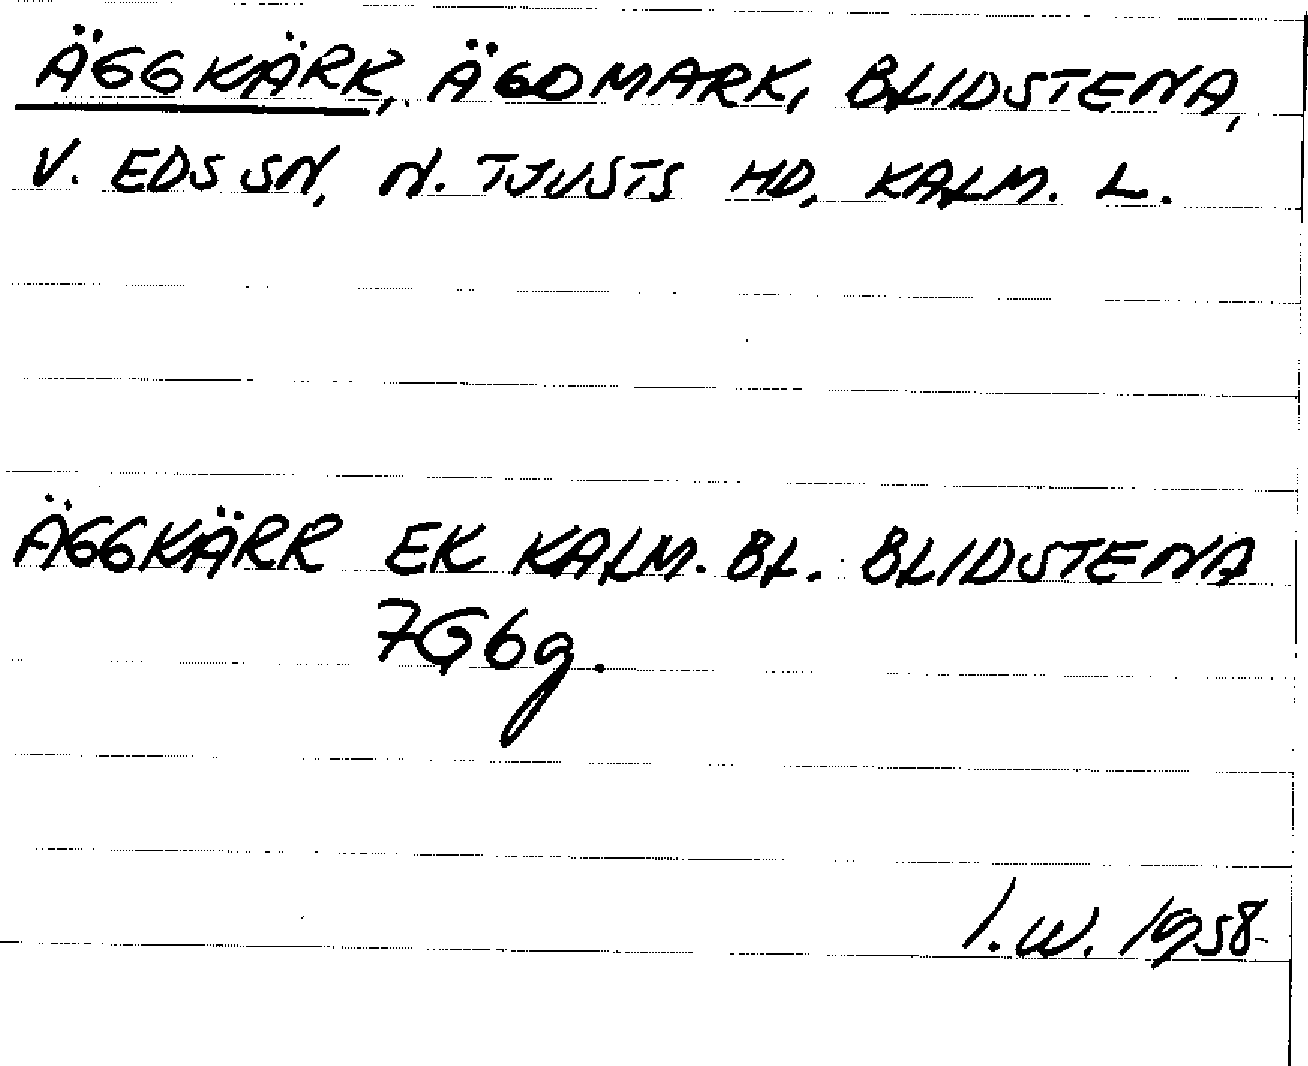 ÄGGKÄRR, ÄGOMARK, BLIDSTENA,
V. EDS SN, N. TJUSTS HD, KALM. L.
ÄGGKÄRR EK KALM. BL. BLIDSTENA
7G6g.
I.W. 1958